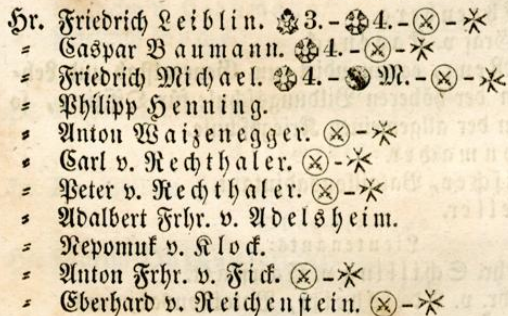 Hr. Friedrich Leiblin. 3.-4.-
" Caspar Baumann. 4.-
" Friedrich Michael. 4.-M.-
" Philipp Henning.
" Anton Waizenegger.
" Carl v. Rechthaler.
" Peter v. Rechthaler.
" Adalbert Frhr. v. Adelsheim.
" Nepomuk v. Klock.
" Anton Frhr. v. Fick.
" Eberhard v. Reichenstein.